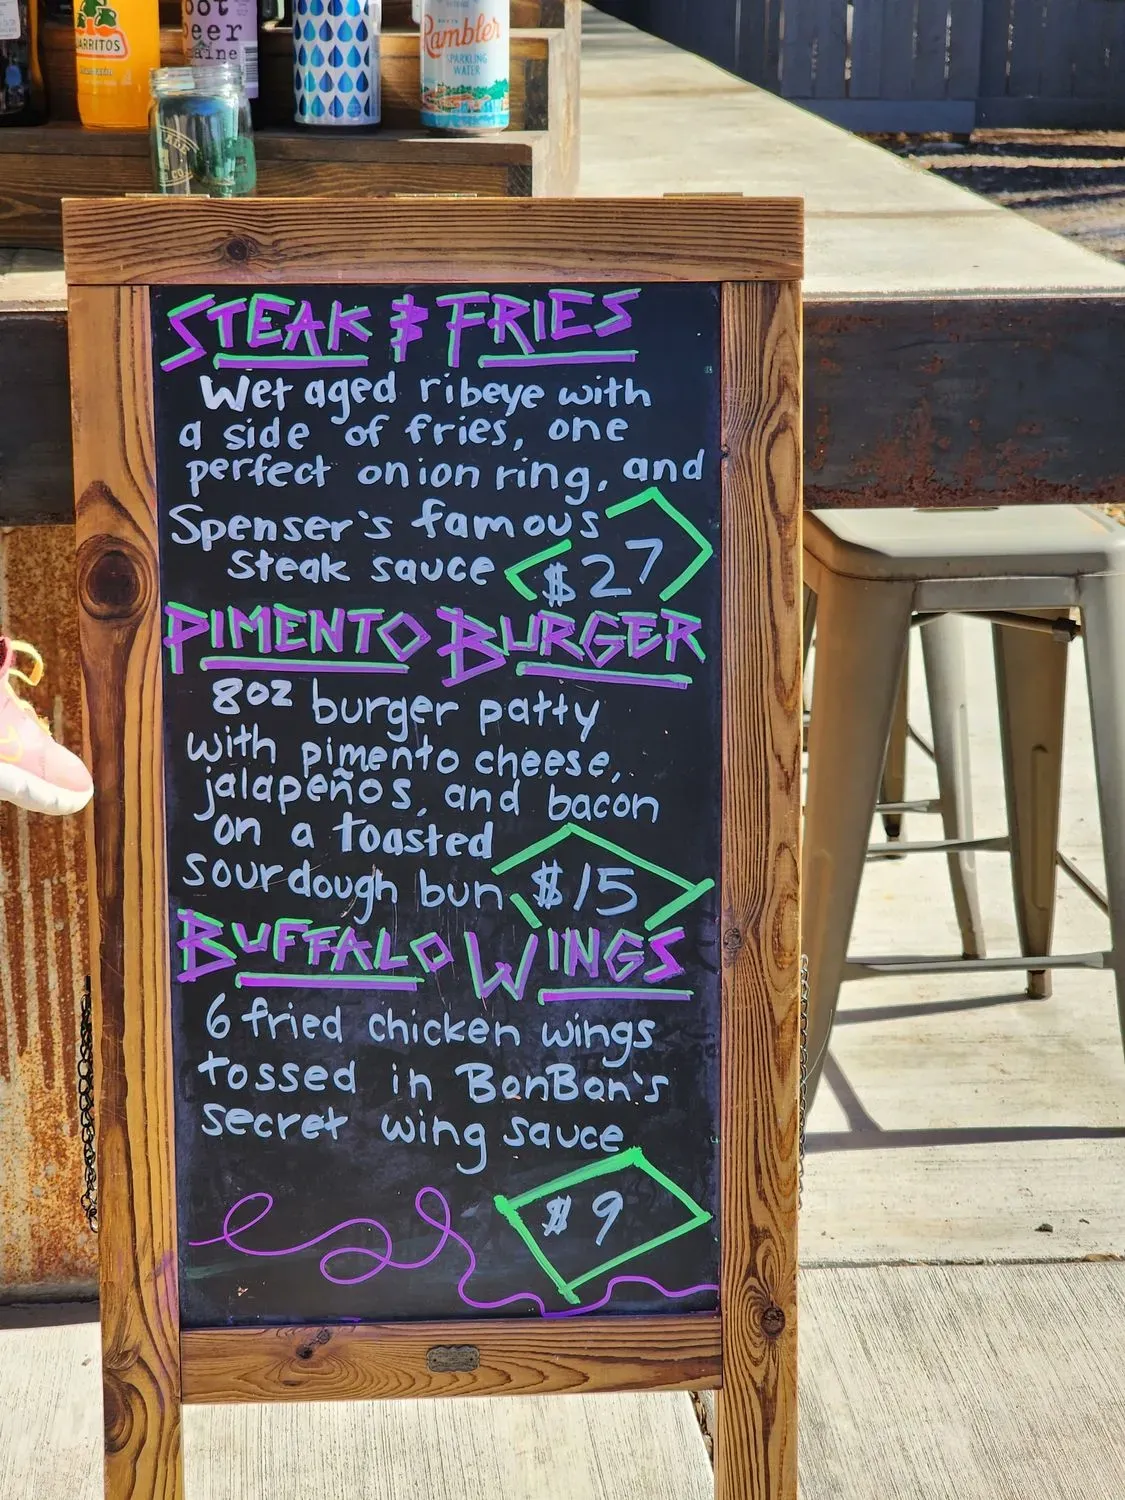 JARRITOS
oot
beer
Rambler
SPARKLING
WATER
STEAK & FRIES
Wet aged ribeye with
a side of fries, one
perfect onion ring, and
Spenser's famous
steak sauce
$27
PIMENTO BURGER
8oz burger patty
with pimento cheese,
jalapeños, and bacon
on a toasted
sourdough bun
$15
BUFFALO WINGS
6 fried chicken wings
tossed in BonBon's
secret wing sauce
$9